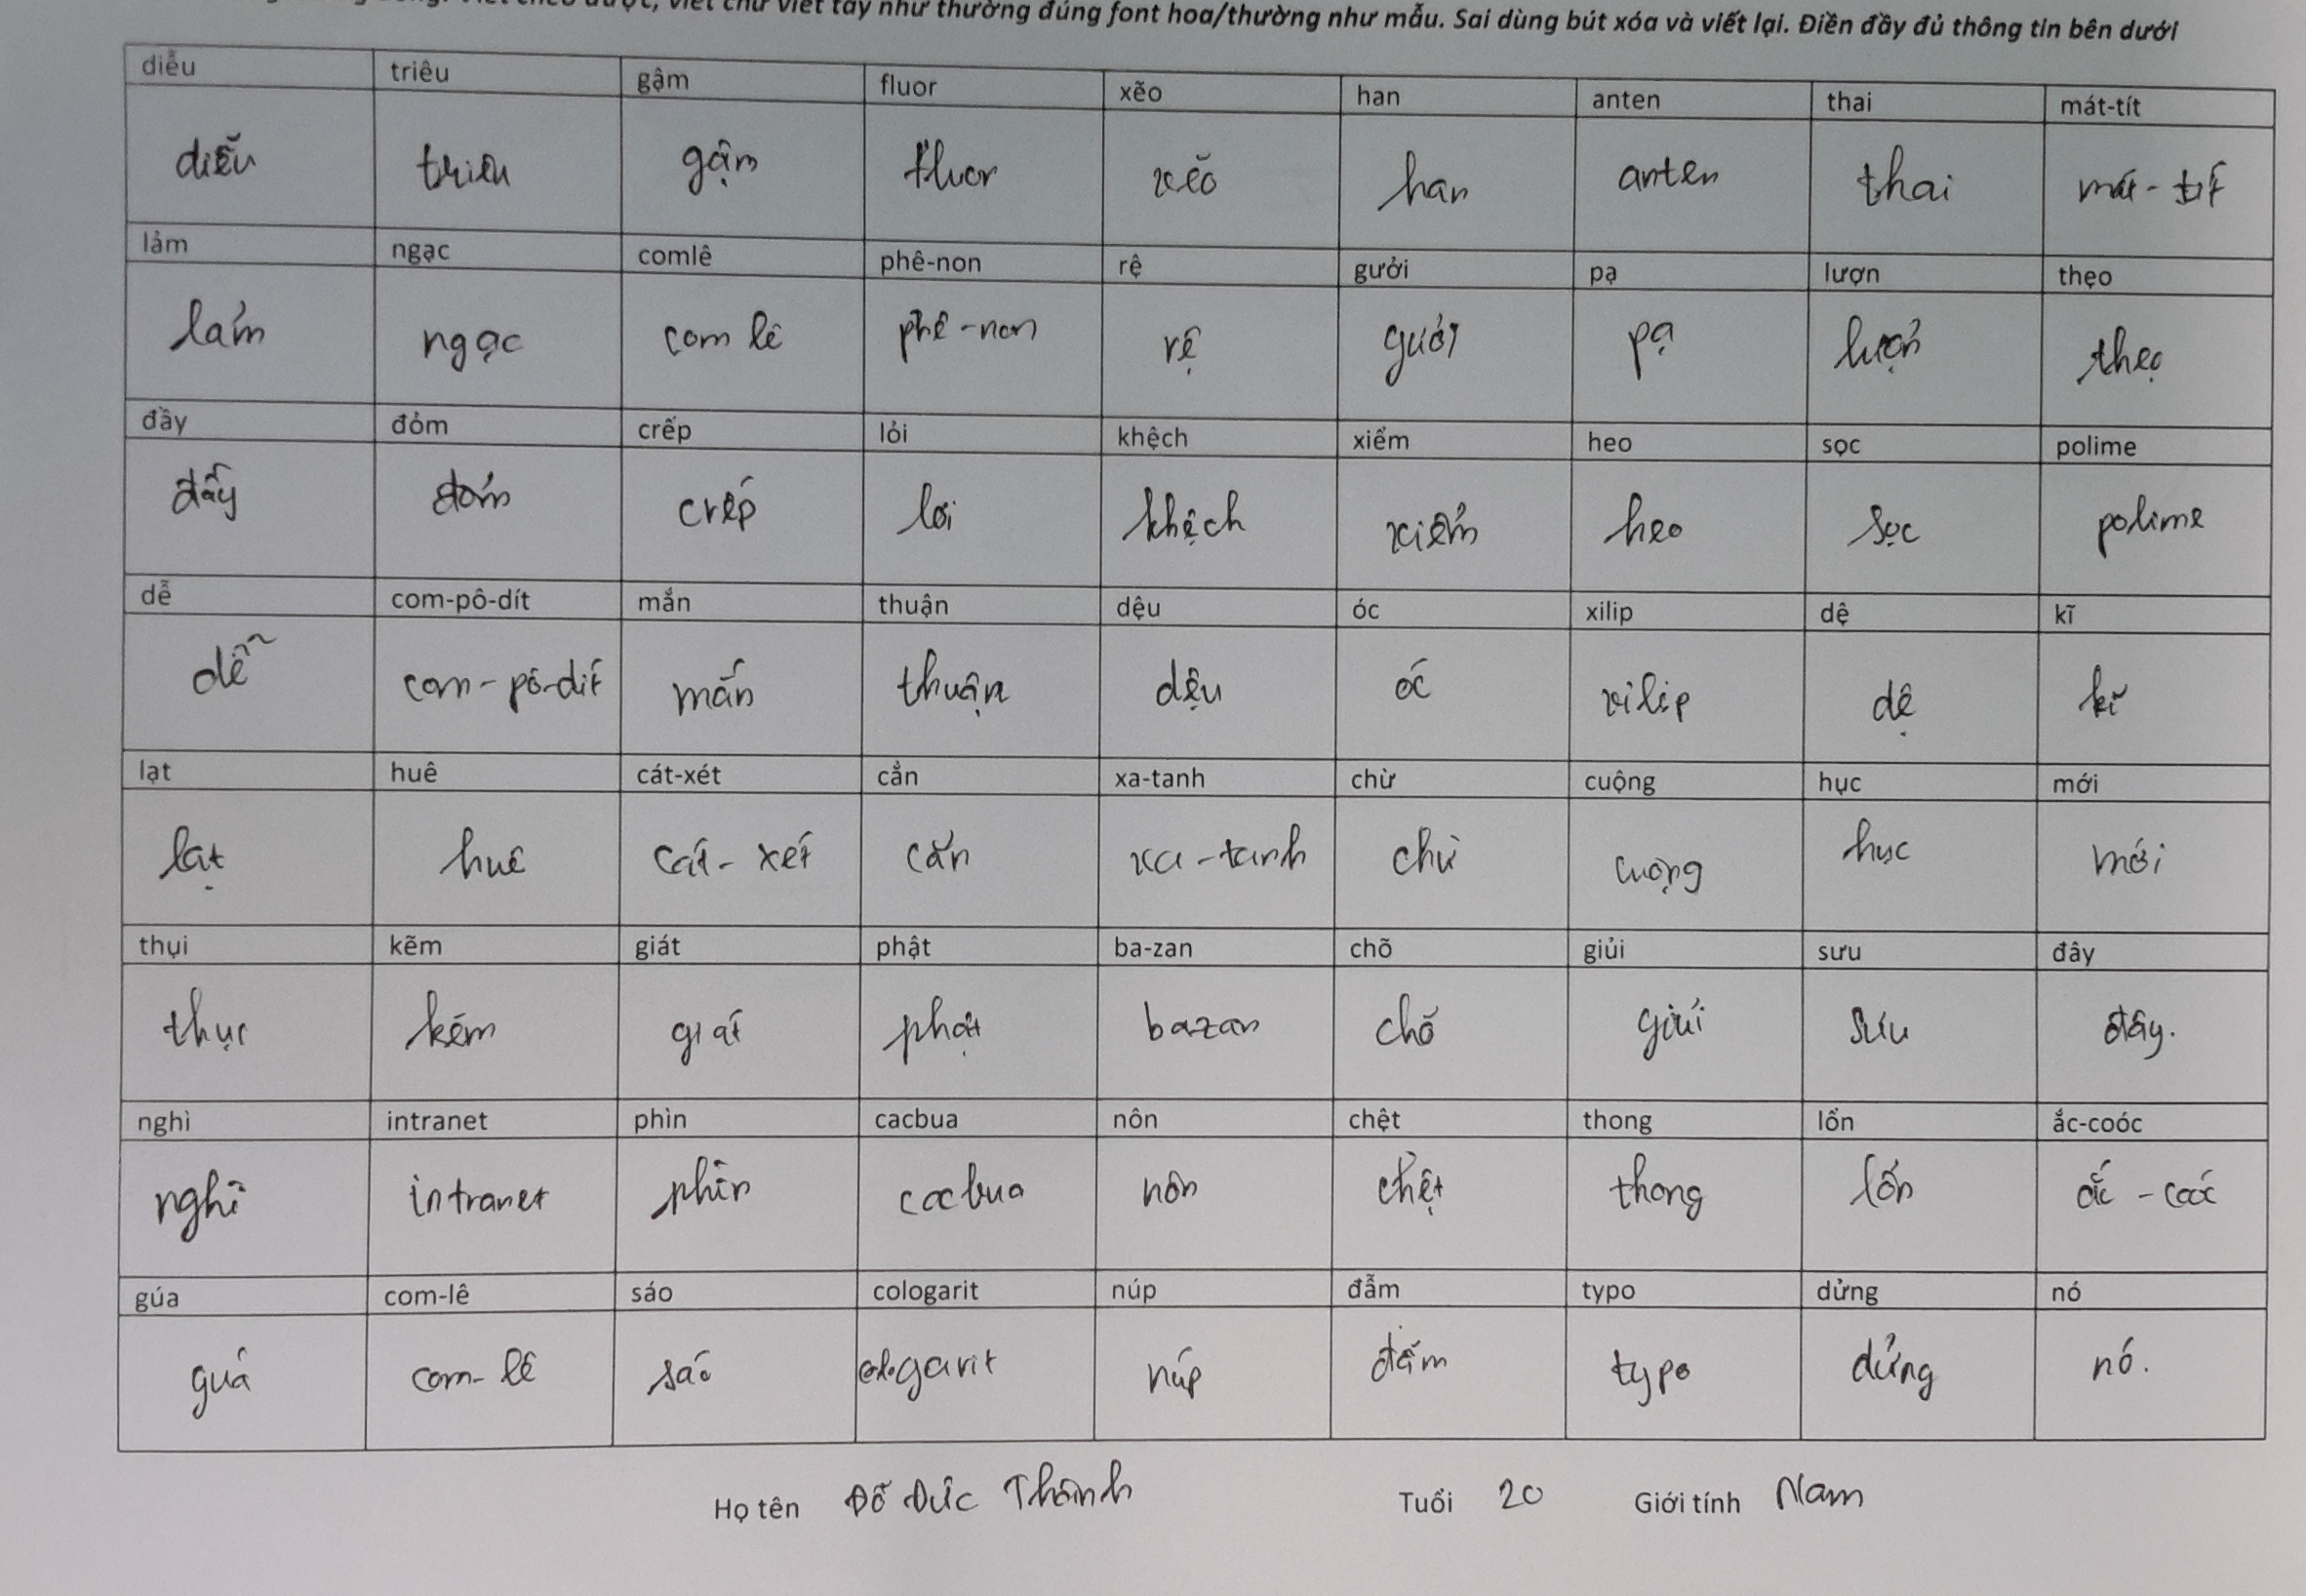 viết chữ viết tay như thường đúng font hoa/thường như mẫu. Sai dùng bút xóa và viết lại. Điền đầy đủ thông tin bên dưới
diễu triêu gậm fluor xẽo han anten thai mát-tít
diễu triêu gậm fluor xẽo han anten thai mát-tít
lảm ngạc comlê phê-non rệ gưởi pạ lượn thẹo
lảm ngạc com lê phê-non rệ gưởi pạ lượn thẹo
đầy đỏm crếp lỏi khệch xiểm heo sọc polime
đầy đỏm crếp lỏi khệch xiểm heo sọc polime
dễ com-pô-dít mắn thuận dệu óc xilip dệ kĩ
dễ com-pô-dít mắn thuận dệu óc xilip dệ kĩ
lạt huê cát-xét cẳn xa-tanh chừ cuộng hục mới
lạt huê cát-xét cẳn xa-tanh chừ cuộng hục mới
thụi kẽm giát phật ba-zan chõ giủi sưu đây
thụi kẽm giát phật bazan chõ giủi sưu đây.
nghì intranet phìn cacbua nôn chệt thong lổn ắc-coóc
nghì intranet phìn cacbua nôn chệt thong lổn ắc-coóc
gúa com-lê sáo cologarit núp đẫm typo dửng nó
guá com-lê sáo cologarit núp đẫm typo dửng nó.
Họ tên Đỗ Đức Thành Tuổi 20 Giới tính Nam